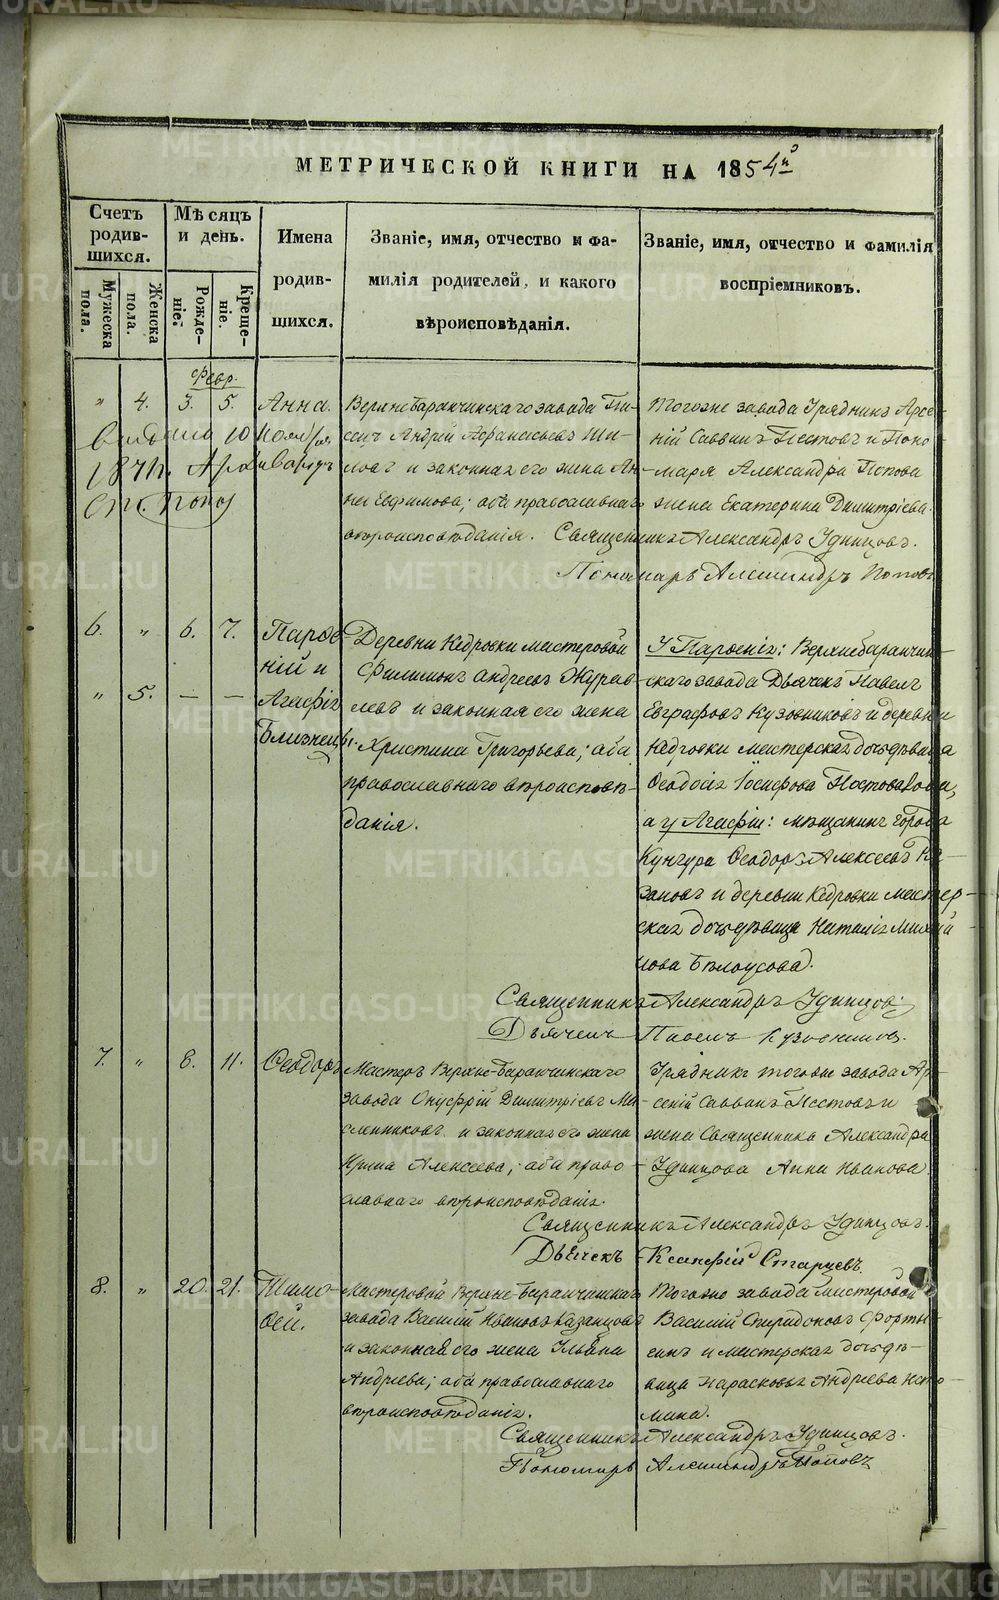 МЕТРИЧЕСКОЙ КНИГИ НА 1854й
Счетъ родив-шихся.
Мужеска пола.
Женска пола.
Мѣсяцъ и день.
Рожденіе.
Крещеніе.
Имена
родив-
шихся.
Званіе, имя, отчество и фа-
милія родителей, и какого
вѣроисповѣданія.
Званіе, имя, отчество и фамилія
воспріемниковъ.
Февр.
" 4. 3. 5. Анна.
1871
Верхнебаранчинскаго завода Пи-
сецъ Андрей Аѳанасьевъ Ши-
ловъ и законная его жена Ан-
на Евфимова; оба православнаго
вѣроисповѣданія.
Тогоже завода Урядникъ Арсе-
ній Саввинъ Пестовъ и Поно-
маря Александра Попова
жена Екатерина Димитріева.
Священникъ Александръ Удинцовъ.
Пономарь Александръ Поповъ
6. " 6. 7. Парѳе-
ній и
" 5. — — Агафія
Близнецы.
Деревни Кедровки мастеровой
Филимонъ Андреевъ Журав-
левъ и законная его жена
Христина Григорьева; оба
православнаго вѣроисповѣ-
данія.
У Парѳенія: Верхнебаранчин-
скаго завода Дьячекъ Павелъ
Евграфовъ Кузовниковъ и деревни
Кедровки мастерская дочь дѣвица
Ѳеодосія Іосифова Постовалова,
а у Агафіи: мѣщанинъ города
Кунгура Ѳеодоръ Алексеевъ Ка-
зановъ и деревни Кедровки мастер-
ская дочь дѣвица Наталія Михай-
лова Бѣлоусова.
Священникъ Александръ Удинцовъ.
Дьячекъ Павелъ Кузовниковъ.
7. " 8. 11. Ѳеодоръ
Мастеръ Верхне-Баранчинскаго
завода Онуфрій Димитріевъ Ма-
сленниковъ и законная его жена
Ирина Алексеева; оба право-
славнаго вѣроисповѣданія.
Урядникъ тогоже завода Ар-
сеній Саввинъ Пестовъ и
жена Священника Александра
Удинцова Анна Иванова.
Священникъ Александръ Удинцовъ.
Дьячекъ Ксенофій Старцевъ.
8. " 20. 21. Тимо-
ѳей.
Мастеровой Верхне-Баранчинскаго
завода Василій Ивановъ Казанцовъ
и законная его жена Ульяна
Андреева; оба православнаго
вѣроисповѣданія.
Тогоже завода Мастеровой
Василій Спиридоновъ Форты-
гинъ и мастерская дочь дѣ-
вица Парасковья Андреева Исто-
мина.
Священникъ Александръ Удинцовъ.
Пономарь Александръ Поповъ
METRIKI.GASO-URAL.RU